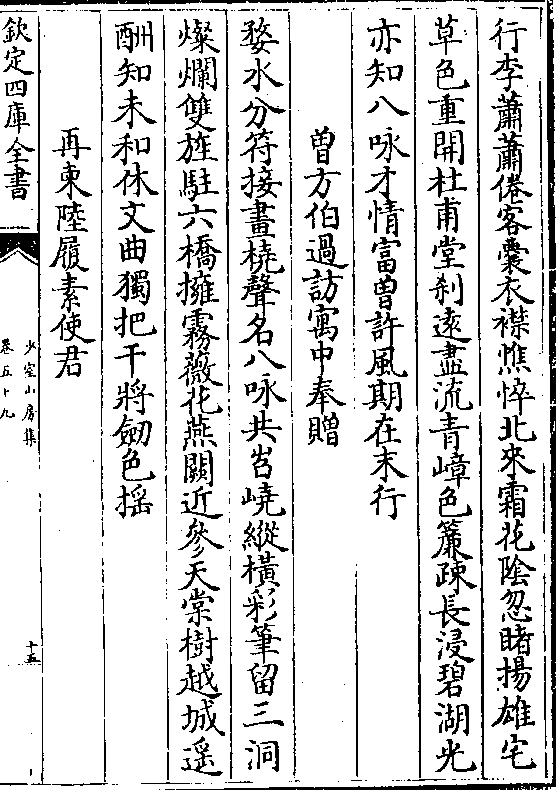 行李蕭蕭倦客囊衣襟憔悴北來霜花陰忽睹揚雄宅
草色重開杜甫堂刹遠盡流青嶂色簾疎長浸碧湖光
亦知八咏才情富曾許風期在末行
曽方伯過訪寓中奉贈
婺水分符接畫橈聲名八咏共岧嶢縱橫彩筆留三洞
燦爛雙旌駐六橋擁霧薇花燕闕近參天棠樹越城遥
酬知未和休文曲獨把干將劒色揺
再柬陸履素使君
欽定四庫全書
少室山房集
卷五十九
十五